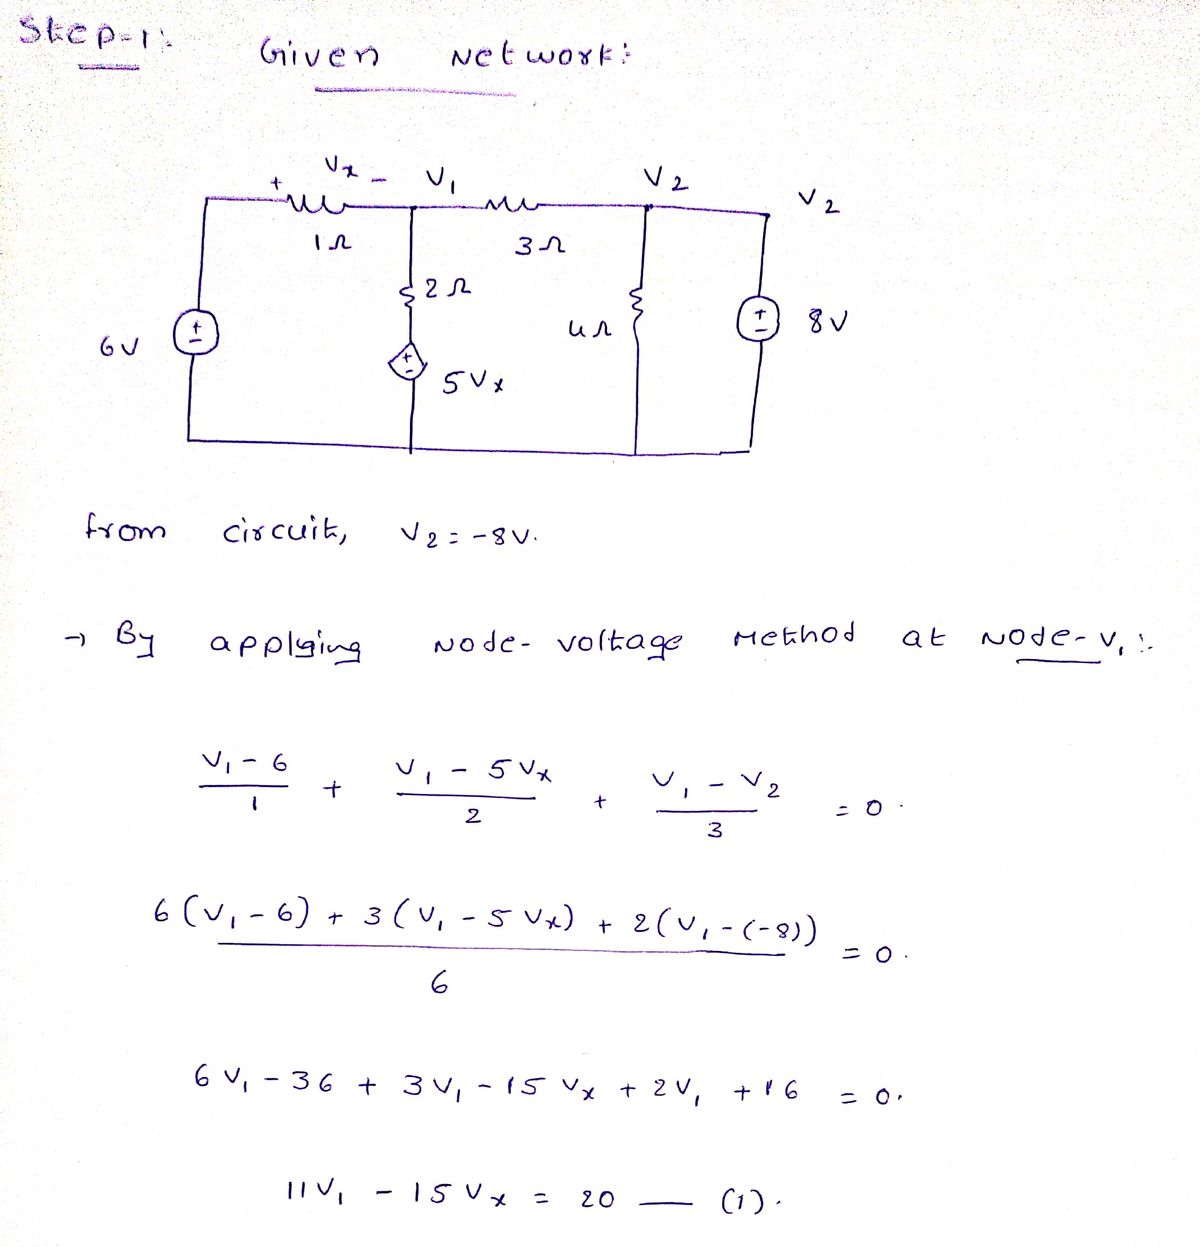 Step-1:
Given Network:
Vx
+ - V1 V2 V2
1Ω 3Ω
2Ω
6V + - 4Ω + - 8V
+ - 5Vx
from circuit, V2 = -8V.
→ By applying Node-voltage Method at Node-V1:-
(V1 - 6)/1 + (V1 - 5Vx)/2 + (V1 - V2)/3 = 0.
(6(V1 - 6) + 3(V1 - 5Vx) + 2(V1 - (-8)))/6 = 0.
6V1 - 36 + 3V1 - 15Vx + 2V1 + 16 = 0.
11V1 - 15Vx = 20 — (1).